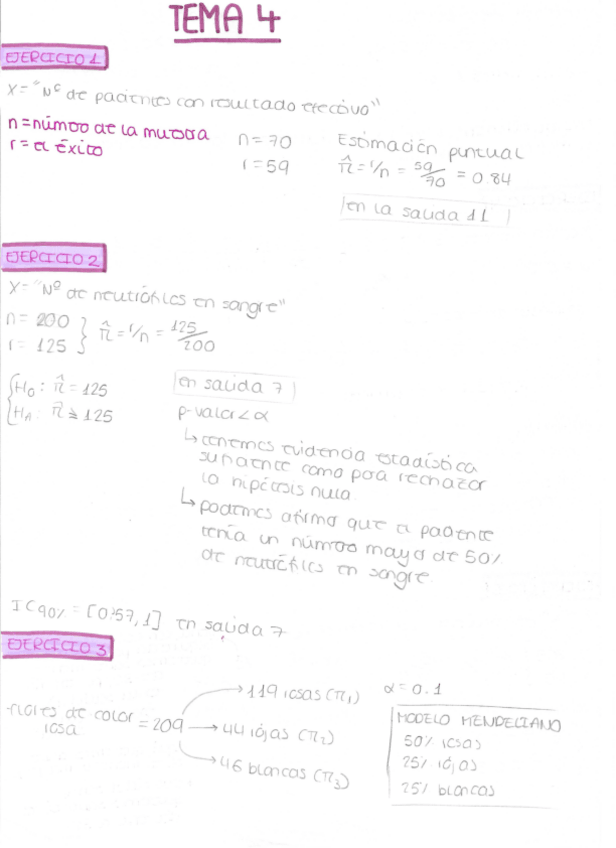 TEMA 4
EJERCICIO 1
X = "Nº de pacientes con resultado efectivo"
n = número de la muestra
r = el éxito
n = 70
r = 59
Estimación puntual
π̂ = r/n = 59/70 = 0.84
en la salida 11
EJERCICIO 2
X = "Nº de neutrófilos en sangre"
n = 200
r = 125
π̂ = r/n = 125/200
H₀: π̂ = 125
Hₐ: π̂ ≥ 125
en salida 7
p-valor < α
↳ tenemos evidencia estadística
suficiente como para rechazar
la hipótesis nula
↳ podemos afirmar que el paciente
tenía un número mayor de 50%
de neutrófilos en sangre
IC90% = [0'57, 1] en salida 7
EJERCICIO 3
flores de color
rosa = 209
→ 119 rosas (π₁)
→ 44 rojas (π₂)
→ 46 blancas (π₃)
α = 0.1
MODELO MENDELIANO
50% rosas
25% rojas
25% blancas